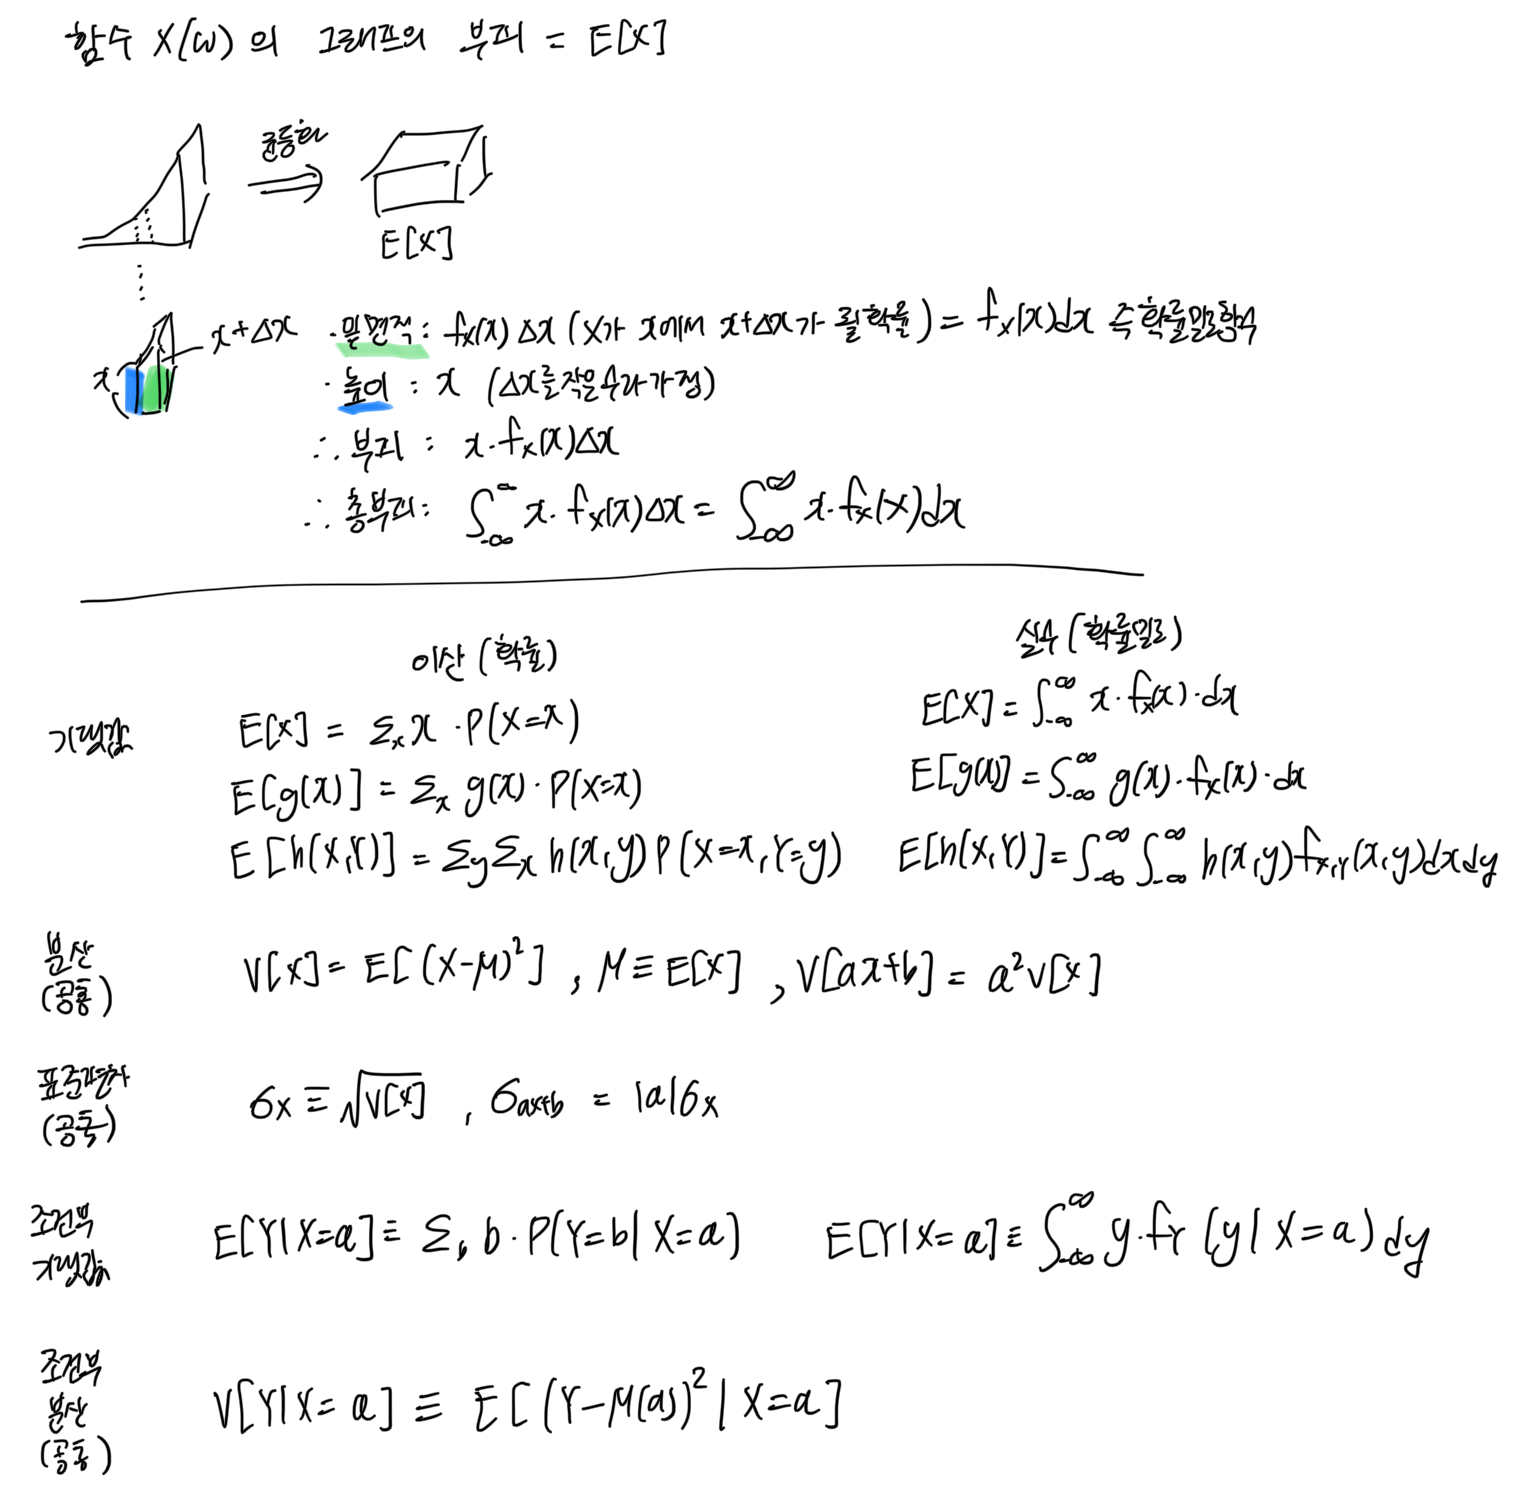 함수 X(ω)의 그래프의 부피 = E[X]
균등화
E[X]
x+Δx
x
· 밑면적 : fx(x)Δx (X가 x에서 x+Δx가 될 확률) = fx(x)dx 즉 확률밀도함수
· 높이 : x (Δx를 작은 수라 가정)
∴ 부피 : x·fx(x)Δx
∴ 총부피 : ∫_{-∞}^{∞} x·fx(x)Δx = ∫_{-∞}^{∞} x·fx(x)dx
이산 (확률) 실수 (확률밀도)
기댓값 E[X] = Σx x·P(X=x) E[X] = ∫_{-∞}^{∞} x·fx(x)·dx
E[g(x)] = Σx g(x)·P(X=x) E[g(x)] = ∫_{-∞}^{∞} g(x)·fx(x)·dx
E[h(X,Y)] = ΣyΣx h(x,y)P(X=x,Y=y) E[h(X,Y)] = ∫_{-∞}^{∞}∫_{-∞}^{∞} h(x,y)fx,Y(x,y)dxdy
분산
(공통) V[X] = E[(X-μ)²] , μ ≡ E[X] , V[ax+b] = a²V[X]
표준편차
(공통) σx ≡ √V[X] , σax+b = |a|σx
조건부
기댓값 E[Y|X=a] ≡ Σb b·P(Y=b|X=a) E[Y|X=a] ≡ ∫_{-∞}^{∞} y·fY(y|X=a)dy
조건부
분산
(공통) V[Y|X=a] ≡ E[(Y-μ(a))²|X=a]